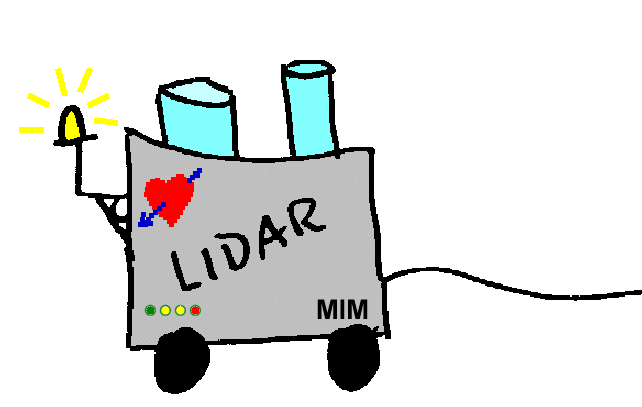 LIDAR
MIM